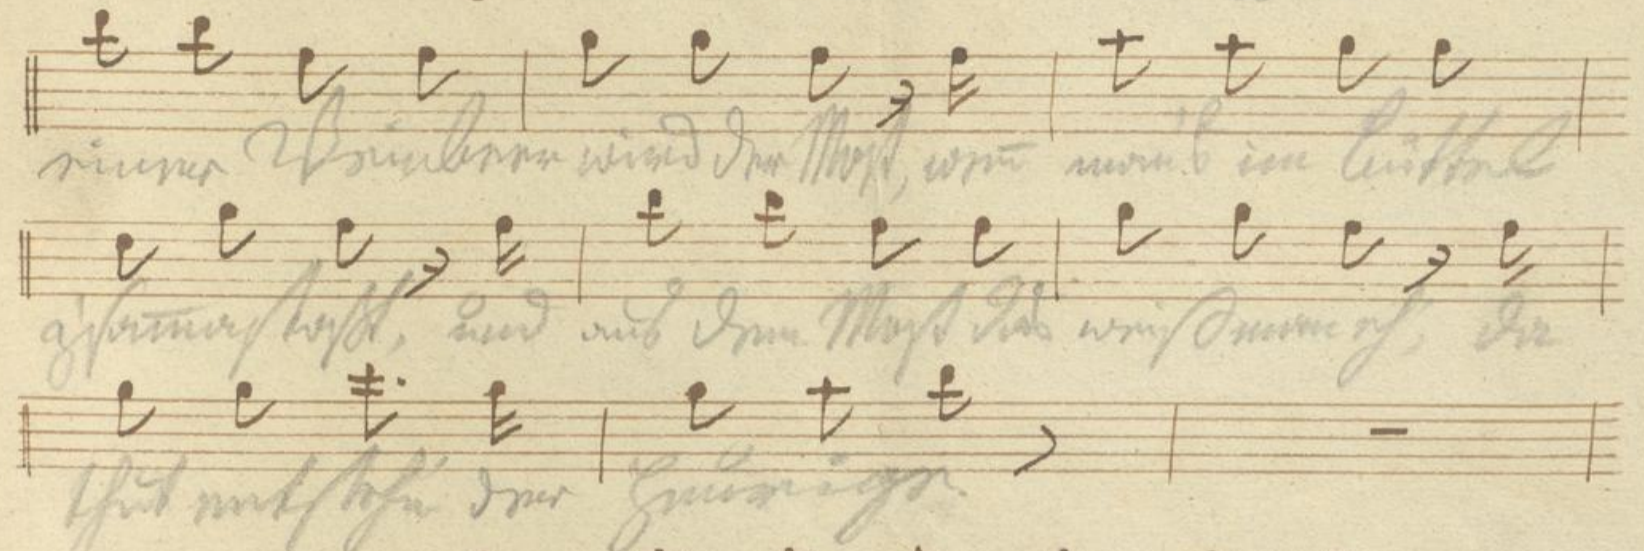 einer Weinbeer wird der Most, weñ man's im Büttel
z'sam̃astoßt, und aus dem Most das weiß man eh', da
thut entsteh'n der Heurige.